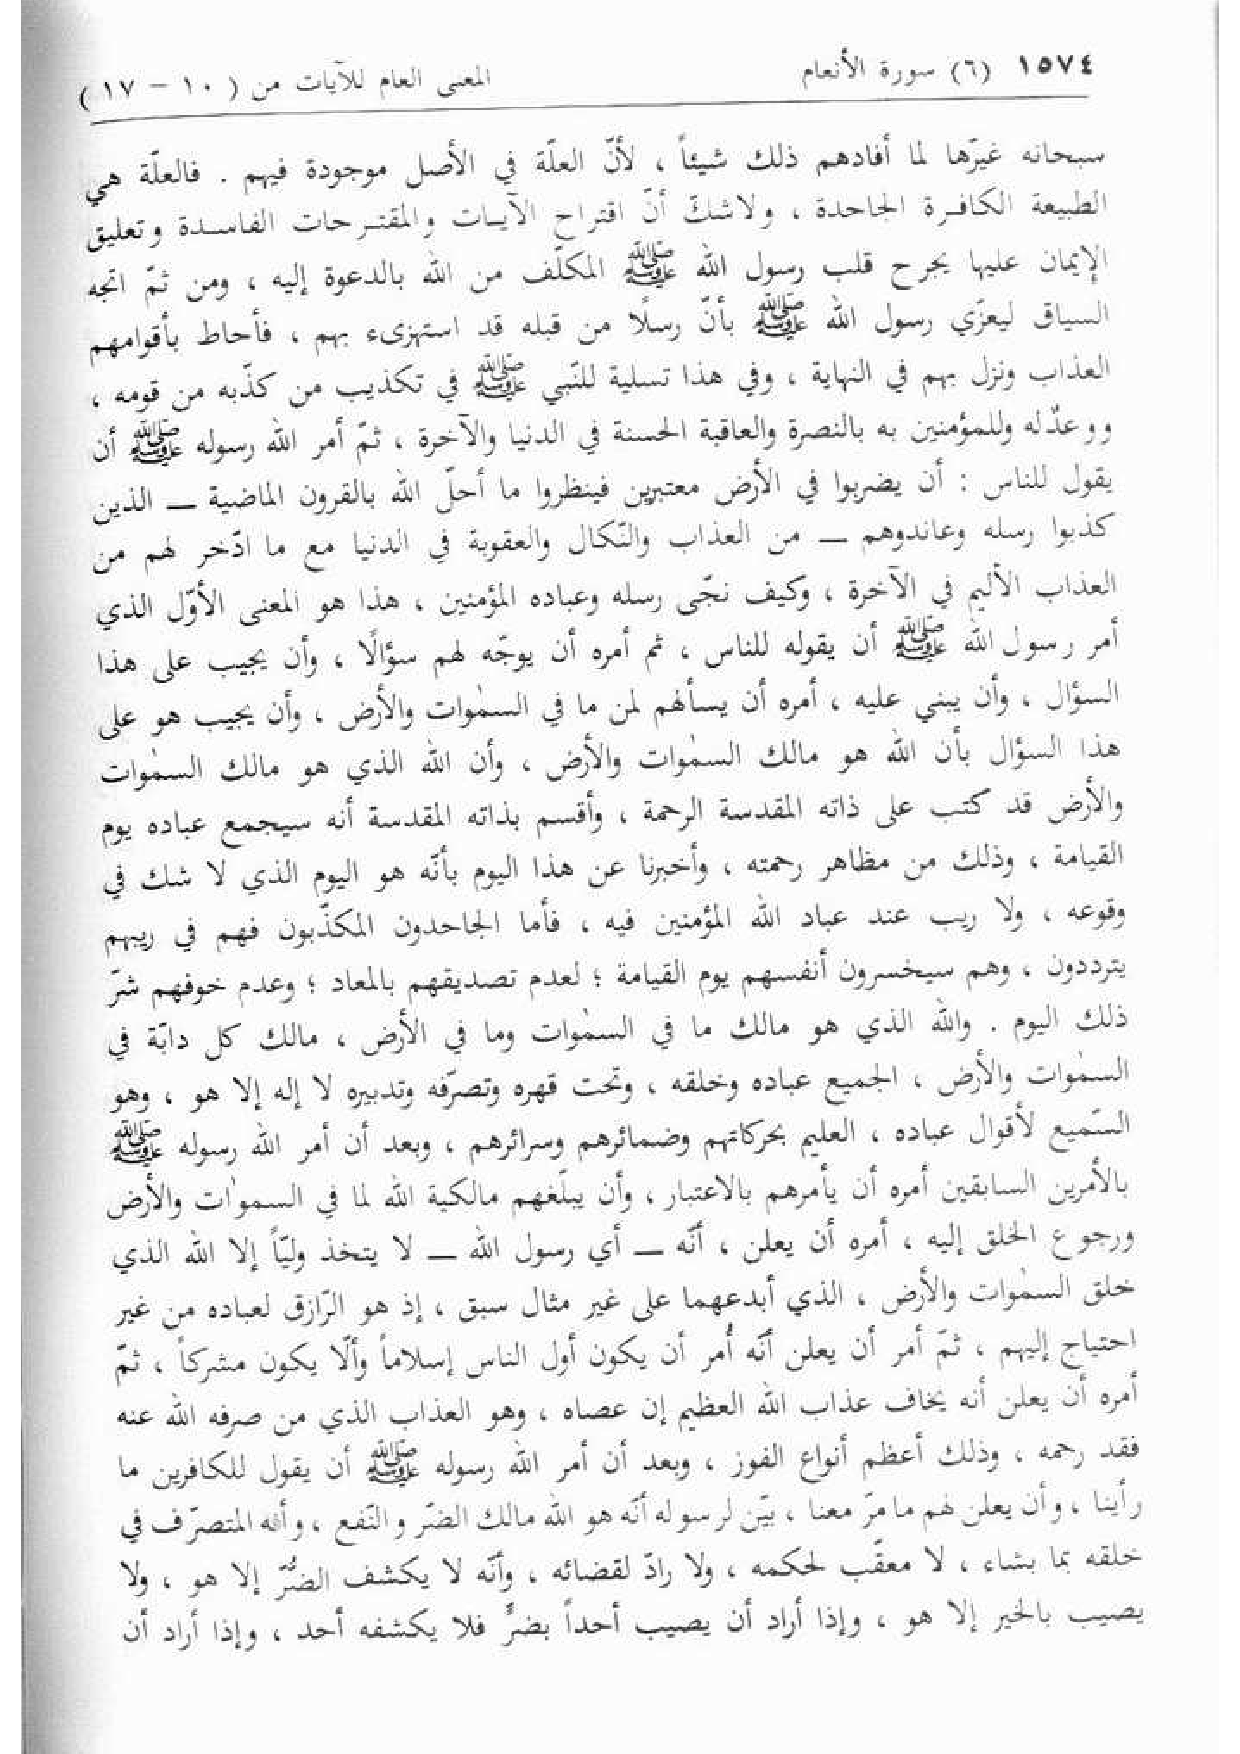 ١٥٧٤ (٦) سورة الأنعام المعنى العام للآيات من ( ١٠ – ١٧ )
سبحانه غيّرها لما أفادهم ذلك شيئاً ، لأنّ العلّة في الأصل موجودة فيهم . فالعلّة هي
الطبيعة الكافرة الجاحدة ، ولاشكّ أنّ اقتراح الآيات والمقترحات الفاسدة وتعليق
الإيمان عليها يجرح قلب رسول الله ﷺ المكلّف من الله بالدعوة إليه ، ومن ثمّ اتجه
السياق ليعزّي رسول الله ﷺ بأنّ رسلًا من قبله قد استهزىء بهم ، فأحاط بأقوامهم
العذاب ونزل بهم في النهاية ، وفي هذا تسلية للنّبي ﷺ في تكذيب من كذّبه من قومه ،
ووعدٌ له وللمؤمنين به بالنصرة والعاقبة الحسنة في الدنيا والآخرة ، ثمّ أمر الله رسوله ﷺ أن
يقول للناس : أن يضربوا في الأرض معتبرين فينظروا ما أحلّ الله بالقرون الماضية ــ الذين
كذبوا رسله وعاندوهم ــ من العذاب والنّكال والعقوبة في الدنيا مع ما ادّخر لهم من
العذاب الأليم في الآخرة ، وكيف نجّى رسله وعباده المؤمنين ، هذا هو المعنى الأوّل الذي
أمر رسول الله ﷺ أن يقوله للناس ، ثم أمره أن يوجّه لهم سؤالًا ، وأن يجيب على هذا
السؤال ، وأن يبني عليه ، أمره أن يسألهم لمن ما في السمٰوات والأرض ، وأن يجيب هو على
هذا السؤال بأن الله هو مالك السمٰوات والأرض ، وأن الله الذي هو مالك السمٰوات
والأرض قد كتب على ذاته المقدسة الرحمة ، وأقسم بذاته المقدسة أنه سيجمع عباده يوم
القيامة ، وذلك من مظاهر رحمته ، وأخبرنا عن هذا اليوم بأنّه هو اليوم الذي لا شك في
وقوعه ، ولا ريب عند عباد الله المؤمنين فيه ، فأما الجاحدون المكذّبون فهم في ريبهم
يترددون ، وهم سيخسرون أنفسهم يوم القيامة ؛ لعدم تصديقهم بالمعاد ؛ وعدم خوفهم شرّ
ذلك اليوم . والله الذي هو مالك ما في السمٰوات وما في الأرض ، مالك كل دابّة في
السمٰوات والأرض ، الجميع عباده وخلقه ، وتحت قهره وتصرّفه وتدبيره لا إله إلا هو ، وهو
السّميع لأقوال عباده ، العليم بحركاتهم وضمائرهم وسرائرهم ، وبعد أن أمر الله رسوله ﷺ
بالأمرين السابقين أمره أن يأمرهم بالاعتبار ، وأن يبلّغهم مالكية الله لما في السموٰات والأرض
ورجوع الخلق إليه ، أمره أن يعلن ، أنّه ــ أي رسول الله ــ لا يتخذ وليّاً إلا الله الذي
خلق السمٰوات والأرض ، الذي أبدعهما على غير مثال سبق ، إذ هو الرّازق لعباده من غير
احتياج إليهم ، ثمّ أمر أن يعلن أنّه أُمر أن يكون أول الناس إسلاماً وألّا يكون مشركاً ، ثمّ
أمره أن يعلن أنه يخاف عذاب الله العظيم إن عصاه ، وهو العذاب الذي من صرفه الله عنه
فقد رحمه ، وذلك أعظم أنواع الفوز ، وبعد أن أمر الله رسوله ﷺ أن يقول للكافرين ما
رأينا ، وأن يعلن لهم ما مرّ معنا ، بيّن لرسوله أنّه هو الله مالك الضّر والنّفع ، وأنه المتصرّف في
خلقه بما يشاء ، لا معقّب لحكمه ، ولا رادّ لقضائه ، وأنّه لا يكشف الضُّرَّ إلا هو ، ولا
يصيب بالخير إلا هو ، وإذا أراد أن يصيب أحداً بضرٍّ فلا يكشفه أحد ، وإذا أراد أن